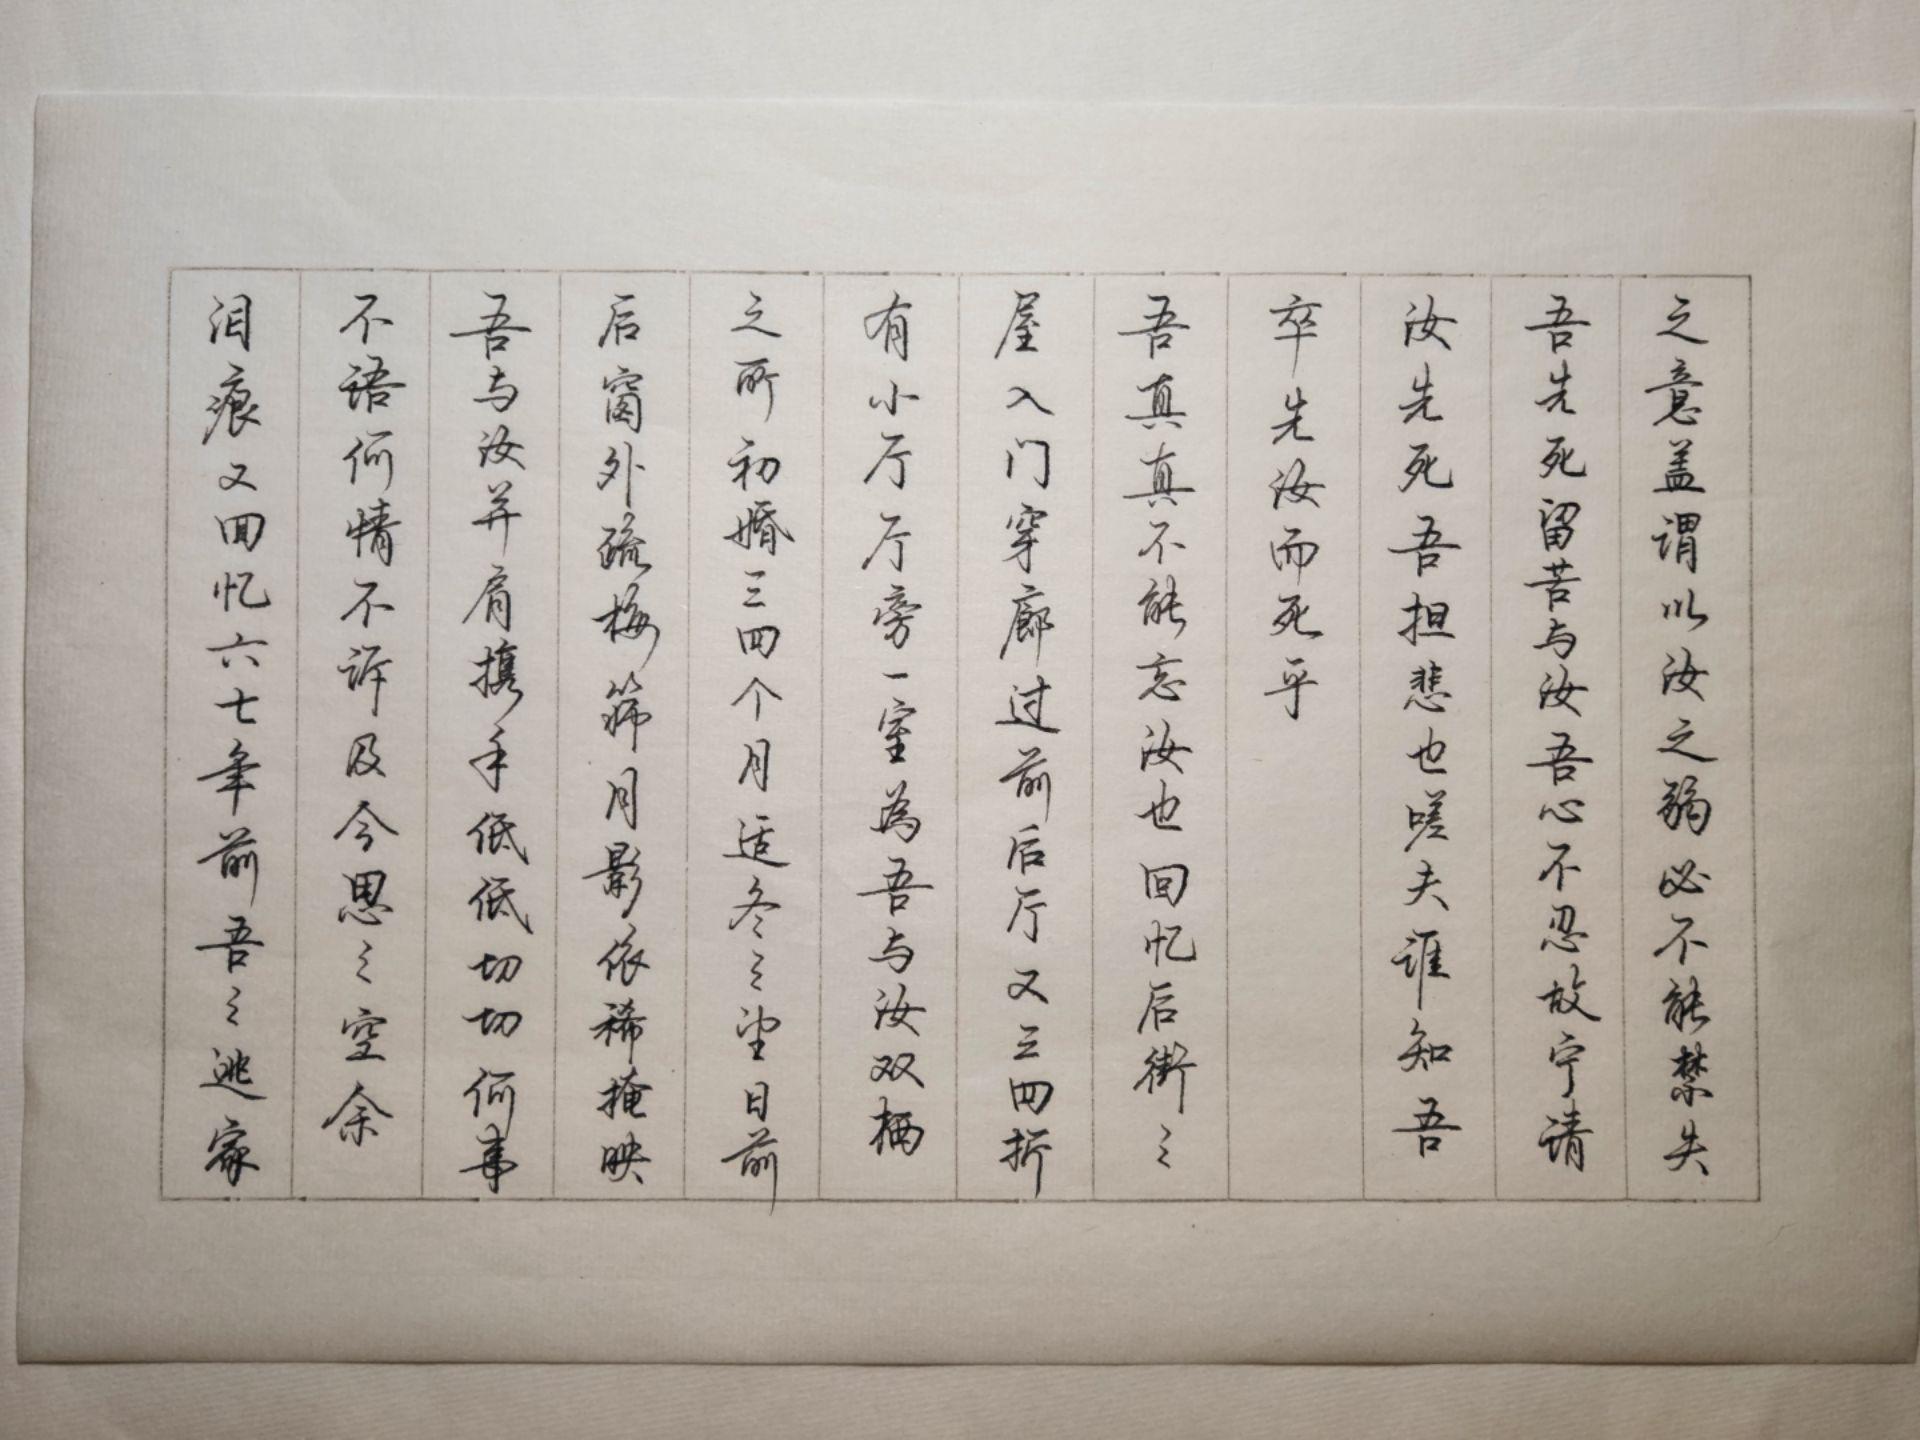 之意盖谓以汝之弱必不能禁失
吾先死留苦与汝吾心不忍故宁请
汝先死吾担悲也嗟夫谁知吾
卒先汝而死乎
吾真真不能忘汝也回忆后街々
屋入门穿廊过前后厅又三四折
有小厅厅旁一室为吾与汝双栖
之所初婚三四个月适冬々望日前
后窗外疏梅筛月影依稀掩映
吾与汝并肩携手低低切切何事
不语何情不诉及今思々空余
泪痕又回忆六七年前吾々逃家